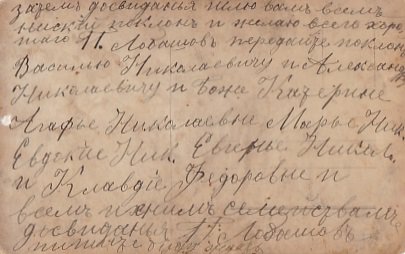 затемъ досвиданья шлю вамъ всемъ
низкий поклонъ и желаю всего хоро
шаго П. Лобашовъ передайте поклон
Василью Николаевичу и Александ
Николаевичу и Катерине
Агафье Николаевне Марье Ник.
Евдокие Ник. Евгенье Никол.
и Клавдіе Федоровне и
всемъ ихнимъ семействамъ
досвиданья П. Лобашовъ
пишите